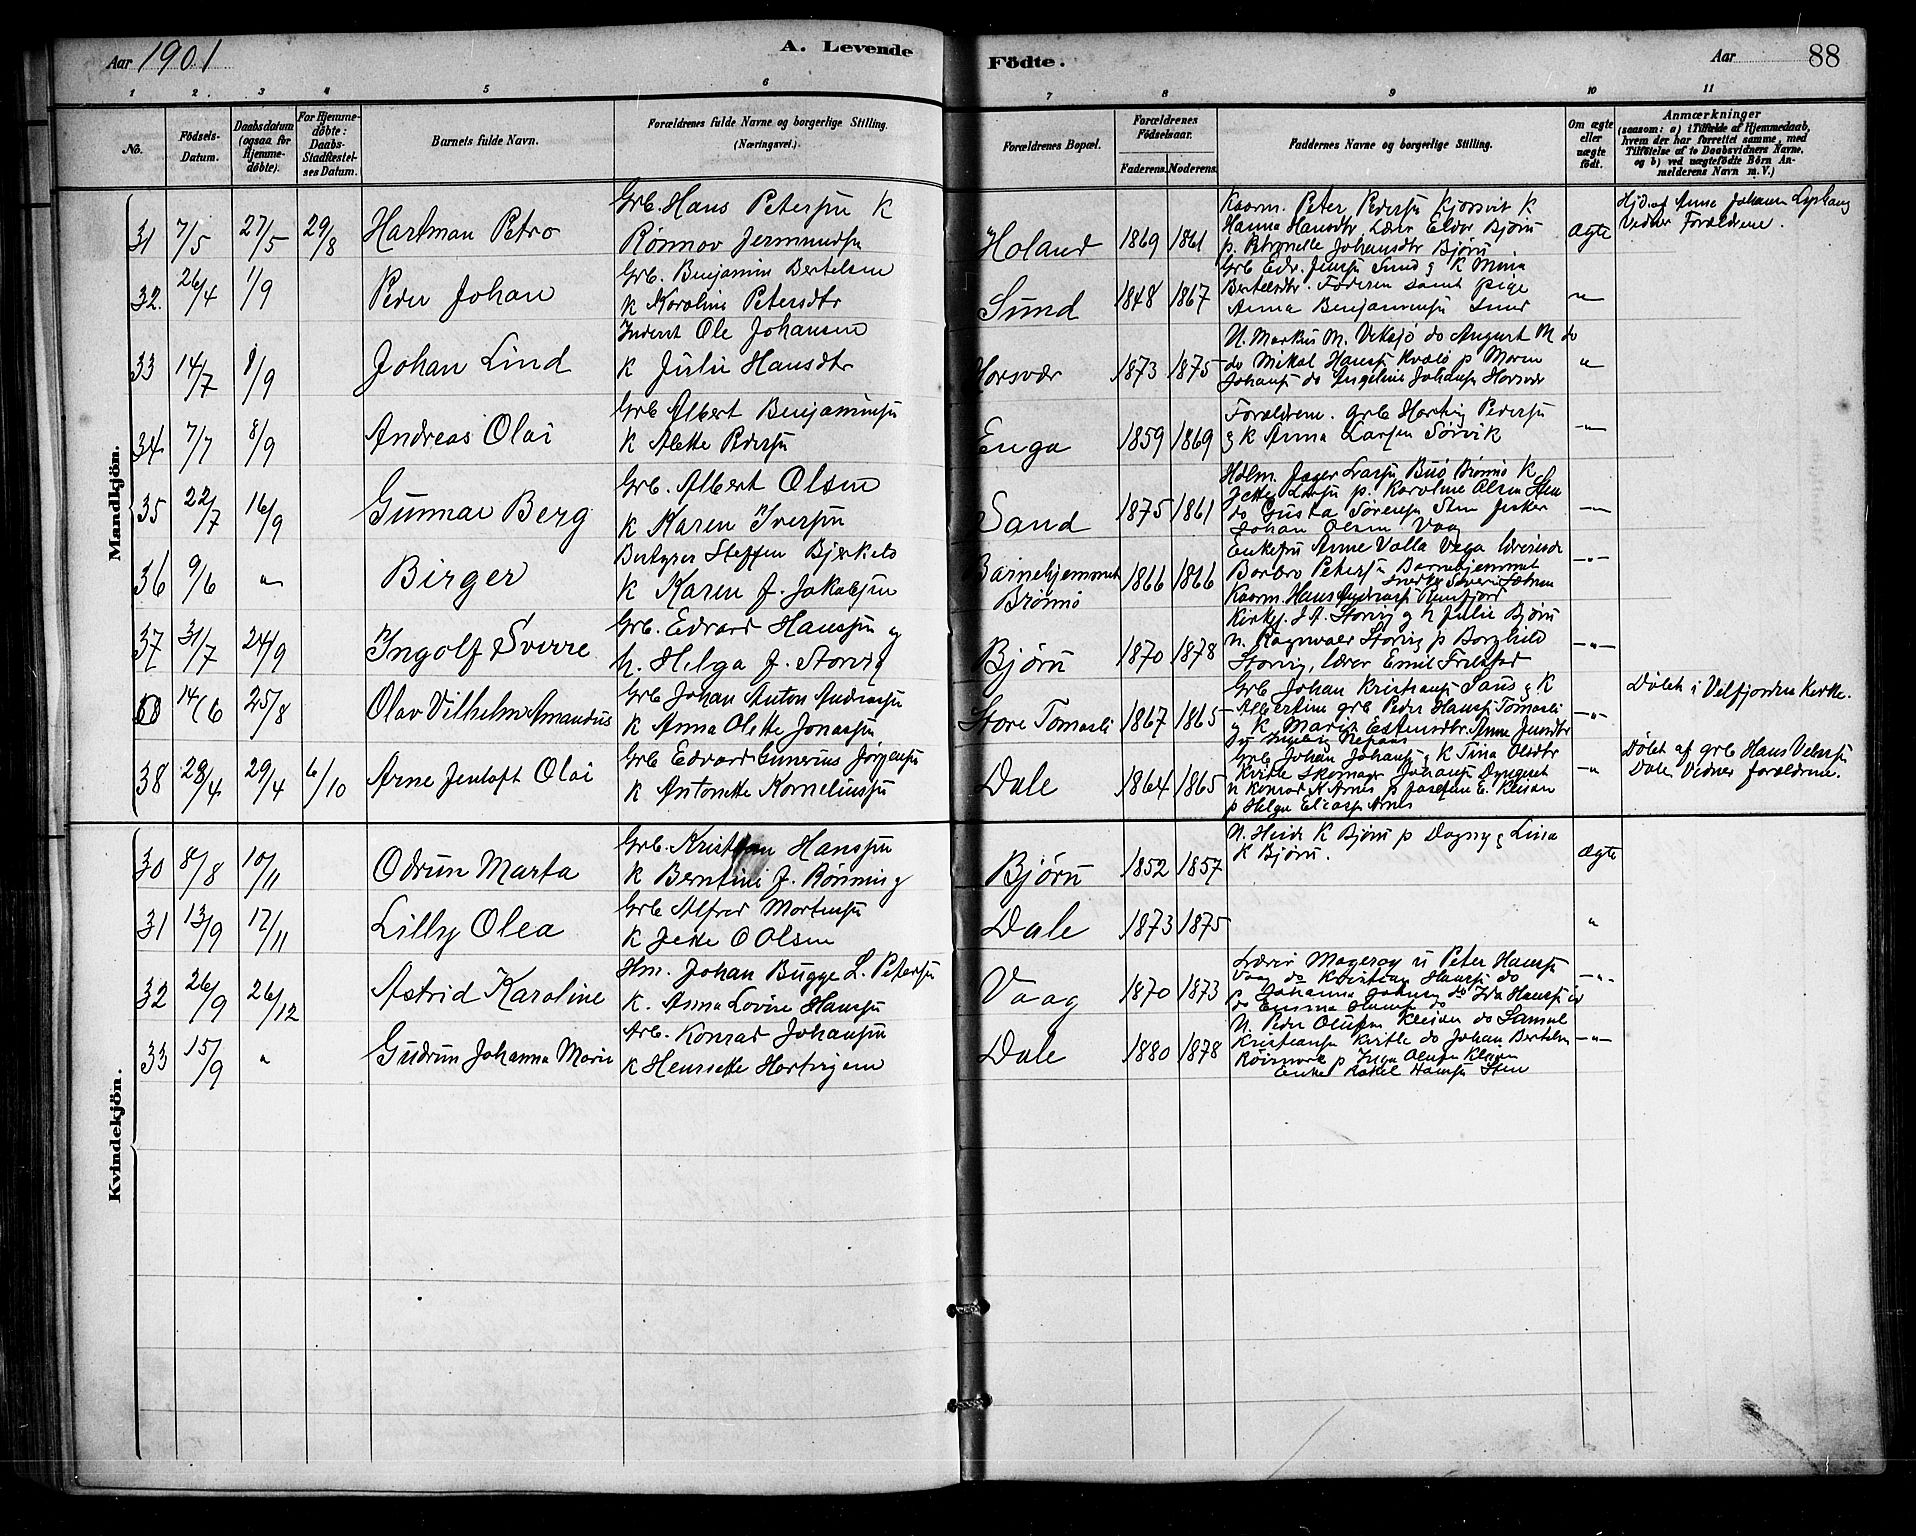 Aar 1901
A. Levende
Födte.
Aar
88
1 2 3 4 5 6 7 8 9 10 11
No.
Födsels-
Datum.
Daabsdatum
(ogsaa for
Hjemme-
døbte).
For Hjemme-
døbte:
Daabs-
Stadfæstel-
ses Datum.
Barnets fulde Navn.
Forældrenes fulde Navne og borgerlige Stilling.
(Næringsvei.)
Forældrenes Bopæl.
Forældrenes
Fødselsaar.
Faderens.
Moderens.
Faddernes Navne og borgerlige Stilling.
Om ægte
eller
uægte
født.
Anmærkninger
(saasom: a) i Tilfælde af Hjemmedaab,
hvem der har forrettet samme, med
Tilföielse af to Daabsvidners Navne,
og b) ved uægtefödte Börn An-
melderens Navn m. V.)
Mandkjön.
31 7/5 27/5 29/8 Hartman Petro
Grb. Hans Petersen K
Rönnov Jermundsen
Holand 1869 1861
Kaarm. Peter Pedersen Kjorsvik K
Hanna Hansdtr, Lærer Eldor Bjørn
p. Petronelle Johansdtr Bjørn
ægte
Hjd. af Anne Johansen
Vidner Forældrene.
32. 26/4 1/9 Peder Johan
Grb. Benjamin Bertelsen
K Karoline Petersdtr
Sund 1848 1867
Grb Edv. Jensen Sund g K Mina
Bertelsdtr. Faderen samt pige
Anna Benjaminsen Sund
"
33 14/7 8/9 Johan Lind
Inderst Ole Johansen
K Julie Hansdtr
Horsvær 1873 1875
U. Markus M. Veksjö do August M do
do Mikal Hansen Kvalö p Maren
Johansen do Angeline Johansen Horsvær
"
34 7/7 8/9 Andreas Olai
Grb Albert Benjaminsen
K Alette Pedersen
Enga 1859 1869
Forældrene. Grb Hartvig Pedersen
g K Anna Larsen Sørvik
"
35 22/7 16/9 Gunnar Berg
Grb. Albert Olsen
K Karen Iversen
Sand 1875 1861
Larsen Brönnö K
Jette Larsen p. Karoline Olsen Sten
do Gusta Sørensen Sten
Johan Olsen Vaag
"
36 9/6 " Birger
Bestyrer Steffen Bjerkelo
K Karen f. Jakobsen
Barnehjemmet
Brønnö
1866 1866
Enkefru Anne Valla Vega lærerinde
Barbro Petersen Barnehjemmet
Kaarm. Hans Andreasen
"
37 31/7 24/9 Ingolf Sverre
Grb. Edvard Hanssen og
h. Helga f. Storvig
Bjørn 1870 1878
Kirkes. J A. Storvig g h Julie Bjørn
u. Ragnvald Storvig p Borghild
Storvig, lærer Emil
"
14/6 25/8 Olav Vilhelm Amandus
Grb Johan Anton Andreasen
K Anna Olette Jonassen
Store Tomasli 1867 1865
Grb Johan Kristiansen Saus g K
Albertine grb Peder Hansen Tomasli
g K Marit Estensdtr. Anne Jensdtr
"
Døbt i Velfjorden Kirke.
38 28/4 29/4 6/10 Arne Jentoft Olai
Grb Edvard Gunerius Jörgensen
K Antonette Korneliussen
Dale 1864 1865
Grb Johan Johansen g K Tina Olsdtr
Kvitle Skomager Johansen
u Konrad K Arnes p Josefine E. Kleiven
p Helga Eliasen Arnes
"
Døbt af grb Hans
Dale Vidner forældrene.
Kvindekjön.
30 8/8 10/11 Odrun Marta
Grb. Kristian Hanssen
K Berntine f. Rönning
Bjørn 1852 1857
U. Heide K Bjørn p Dagny g Lina
K Bjørn.
ægte
31 13/9 17/11 Lilly Olea
Grb Alfred Mortensen
K Jette O Olsen
Dale 1873 1875
"
32 26/9 26/12 Astrid Karoline
Hm. Johan Bugge L. Petersen
K. Anna Lovise Hansen
Vaag 1870 1873
Lærer Magerøy u Peter Hansen
Vaag do Kristian Hansen do
Johanna do Ida Hansen
do Emma Hansen do
"
33 15/9 " Gudrun Johanna Marie
Arb. Konrad Johansen
K Henriette Hartvigsen
Dale 1880 1878
U. Peder Olufsen Kleiven do Samuel
Kristiansen Kvitle do Johan Bertelsen
Röinmork p Inga Olufsen Kleiven
Enke Rakel Hansen Sten
"